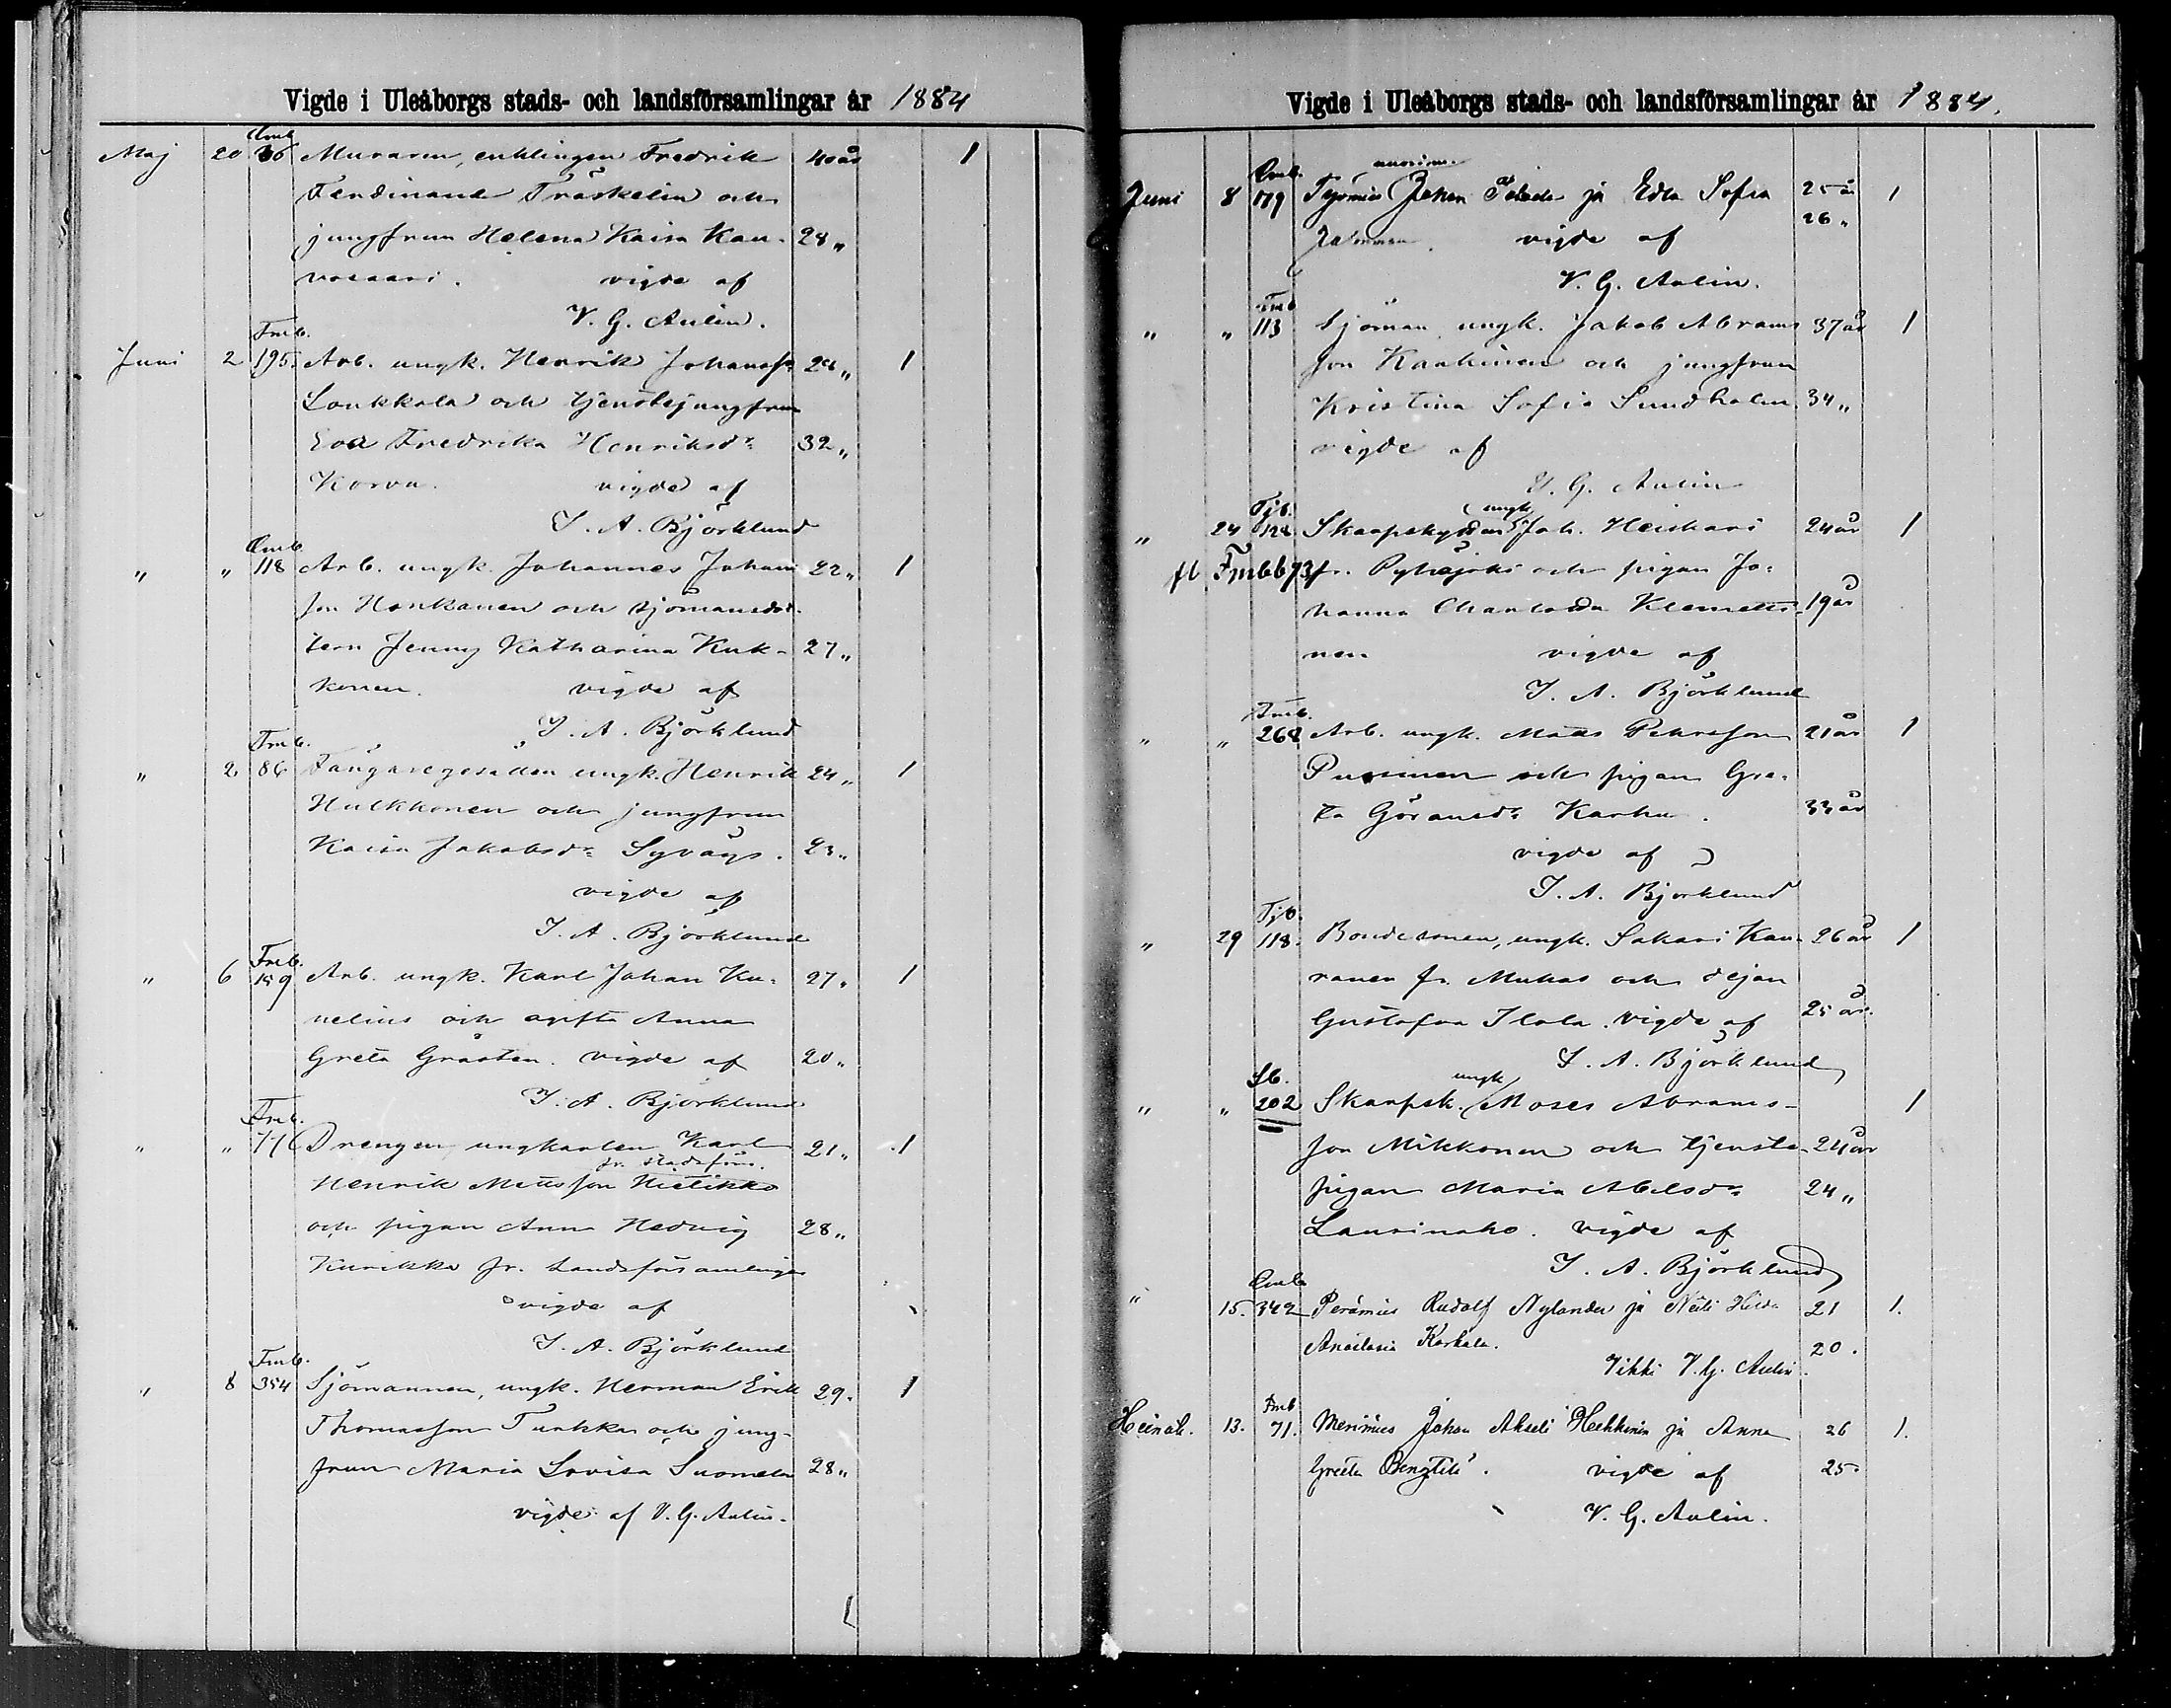 Vigde i Uleåborgs stads- och landsförsamlingar år 1884
Fmb
Maj 20 36 Muraren, enklingen Fredrik 40 år 1
Ferdinand Träskelin och
jungfrun Helena Kaisa Kau- 28 „
vosaari. vigde af
V. G. Aulin.
Fmb.
Juni 2 195 Arb. ungk. Henrik Johansson 24 „ 1
Loukkola och tjenstejungfrun
Eva Fredrika Henriksdr 32 „
Korva. vigde af
J. A. Björklund
Fmb.
„ „ 118 Arb. ungk. Johannes Johans- 22 „ 1
son Honkanen och sjömansdot-
tern Jenny Katharina Kuk- 27 „
konen. vigde af
J. A. Björklund
Fmb.
„ 2 86 ungk. Henrik 24 „ 1
Hulkkonen och jungfrun
Kaisa Jakobsdr Syväys. 23 „
vigde af
J. A. Björklund
Fmb.
„ 6 159 Arb. ungk. Karl Johan Ku- 27 „ 1
nelius och ogifta Anna
Greta Gråsten. vigde af 20 „
J. A. Björklund
Fmb.
„ „ 77 Drengen ungkarlen Karl 21 „ 1
fr. stadsförs.
Henrik Mattsson Hietikko
och pigan Anna Hedvig 28 „
Kurikka fr. Landsförsamlingen
vigde af
J. A. Björklund
Fmb.
„ 8 354 Sjömannen, ungk. Herman Erik 29 „ 1
Thomasson Turkka och jung-
frun Maria Lovisa Suomela 28 „
vigde af V. G. Aulin.
Vigde i Uleåborgs stads- och landsförsamlingar år 1884.
Fmb.
Juni 8 179 Työmies Johan ja Edla Sofia 25 år 1
26 „
vigde af
V. G. Aulin.
Fmb
„ „ 113 Sjöman, ungk. Jakob Abrams- 37 år 1
son Kaakinen och jungfrun
Kristina Sofia Sundholm 34 „
vigde af
V. G. Aulin
Tjb. ungk.
„ 24 124 Skarpskytten Joh. Heiskari 24 år 1
fl Fmb 673 fr. Pyhäjoki och pigan Jo-
hanna Charlotta Klemetti- 19 år
nen vigde af
J. A. Björklund
Fmb.
„ „ 268 Arb. ungk. Matts Pehrsson 21 år 1
Pursinen och pigan Gre-
ta Göransdr Karhu. 33 år
vigde af
J. A. Björklund
Tjb.
„ 29 118. Bondesonen, ungk. Sakari Kau- 26 år 1
ranen fr. Muhos och dejan
Gustafva Ilola. vigde af 25 år.
J. A. Björklund
Sb. ungk
„ „ 202 Skarpsk. Moses Abrams- 1
son Mikkonen och tjenste- 24 år
pigan Maria Abelsdr 24 „
Laurinaho. vigde af
J. A. Björklund
Fmb
„ 15. 342 Perämies Rudolf Nylander ja Neiti Hilda 21 1.
Anastasia Karhula. 20.
Vihki V. G. Aulin.
Fmb
Heinäk. 13. 71. Merimies Johan Akseli Heikkinen ja Anna 26 1.
Greeta Bengtili. vigde af 25.
V. G. Aulin.